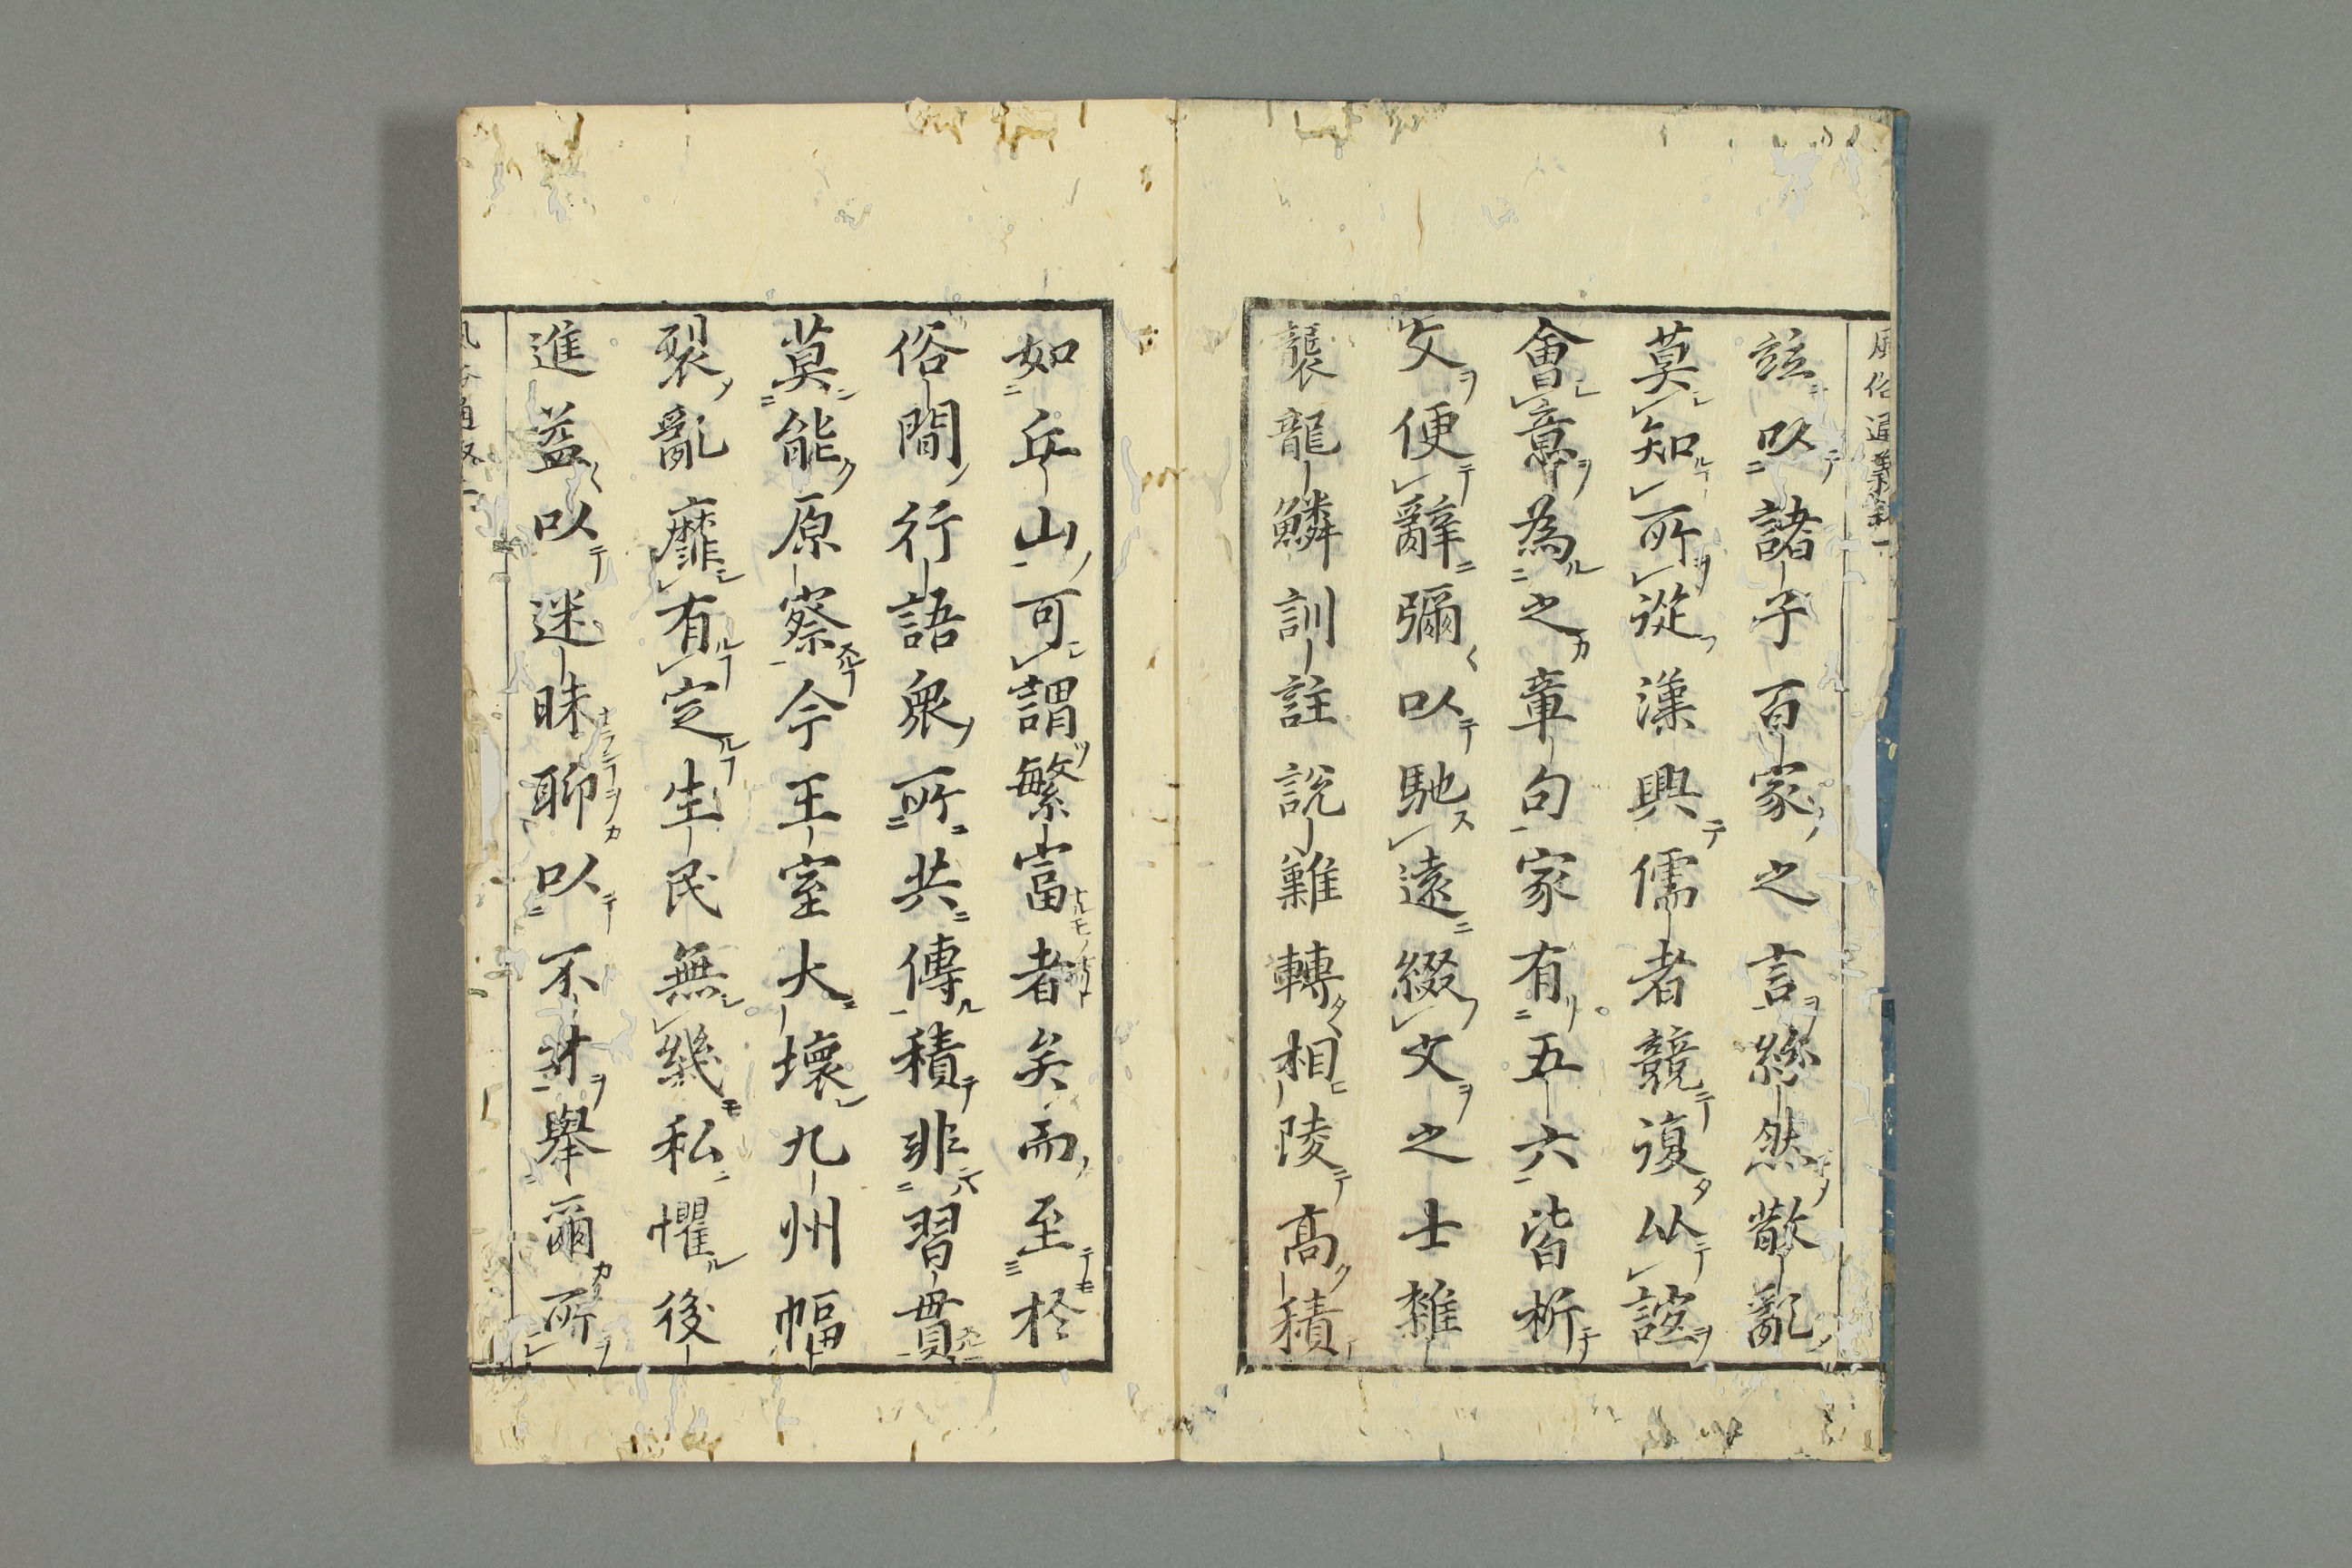 風俗通義叙一
竝以諸子百家之言紛然散亂
莫知所從漢興儒者競復从誼
會意為之章句家有五六皆析
文便辭彌以馳遠綴文之士雜
襲龍鱗訓註說難轉相陵高積
如丘山可謂繁富者矣而至於
俗間行語衆所共傳積非習貫
莫能原察今王室大壞九州幅
裂亂靡有定生民無幾私懼後
進益以迷昧聊以不才舉爾所